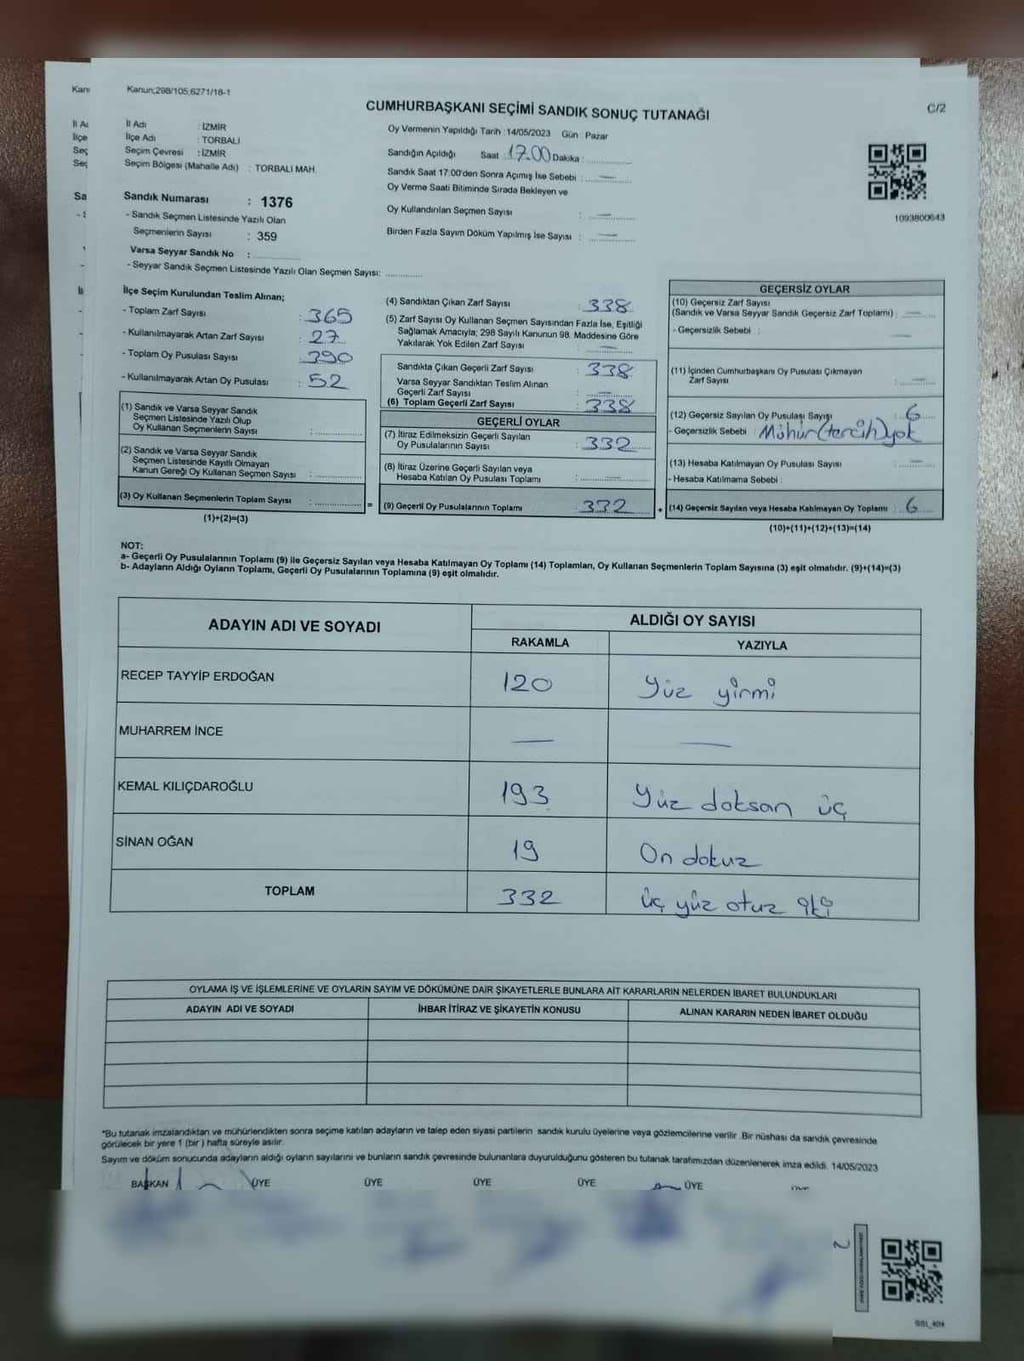 Kanun;298/105,6271/18-1
CUMHURBAŞKANI SEÇİMİ SANDIK SONUÇ TUTANAĞI
C/2
İl Adı : İZMİR
İlçe Adı : TORBALI
Seçim Çevresi : İZMİR
Seçim Bölgesi (Mahalle Adı) : TORBALI MAH.
Sandık Numarası : 1376
- Sandık Seçmen Listesinde Yazılı Olan
Seçmenlerin Sayısı : 359
Varsa Seyyar Sandık No :
- Seyyar Sandık Seçmen Listesinde Yazılı Olan Seçmen Sayısı:
Oy Vermenin Yapıldığı Tarih :14/05/2023 Gün : Pazar
Sandığın Açıldığı Saat :17.00 Dakika :
Sandık Saat 17:00'den Sonra Açımış İse Sebebi : —
Oy Verme Saati Bitiminde Sırada Bekleyen ve
Oy Kullandırılan Seçmen Sayısı : —
Birden Fazla Sayım Döküm Yapılmış İse Sayısı : —
1093800643
İlçe Seçim Kurulundan Teslim Alınan;
- Toplam Zarf Sayısı : 365
- Kullanılmayarak Artan Zarf Sayısı : 27
- Toplam Oy Pusulası Sayısı : 390
- Kullanılmayarak Artan Oy Pusulası : 52
(1) Sandık ve Varsa Seyyar Sandık
Seçmen Listesinde Yazılı Olup
Oy Kullanan Seçmenlerin Sayısı :
(2) Sandık ve Varsa Seyyar Sandık
Seçmen Listesinde Kayıtlı Olmayan
Kanun Gereği Oy Kullanan Seçmen Sayısı :
(3) Oy Kullanan Seçmenlerin Toplam Sayısı : =
(1)+(2)=(3)
(4) Sandıktan Çıkan Zarf Sayısı : 338
(5) Zarf Sayısı Oy Kullanan Seçmen Sayısından Fazla İse, Eşitliği
Sağlamak Amacıyla; 298 Sayılı Kanunun 98. Maddesine Göre
Yakılarak Yok Edilen Zarf Sayısı : —
Sandıkta Çıkan Geçerli Zarf Sayısı : 338
Varsa Seyyar Sandıktan Teslim Alınan
Geçerli Zarf Sayısı : —
(6) Toplam Geçerli Zarf Sayısı : 338
GEÇERLİ OYLAR
(7) İtiraz Edilmeksizin Geçerli Sayılan
Oy Pusulalarının Sayısı : 332
(8) İtiraz Üzerine Geçerli Sayılan veya
Hesaba Katılan Oy Pusulası Toplamı : —
(9) Geçerli Oy Pusulalarının Toplamı : 332 +
GEÇERSİZ OYLAR
(10) Geçersiz Zarf Sayısı
(Sandık ve Varsa Seyyar Sandık Geçersiz Zarf Toplamı) : —
- Geçersizlik Sebebi : —
(11) İçinden Cumhurbaşkanı Oy Pusulası Çıkmayan
Zarf Sayısı : —
(12) Geçersiz Sayılan Oy Pusulası Sayısı : 6
- Geçersizlik Sebebi : Mühür (tercih) yok
(13) Hesaba Katılmayan Oy Pusulası Sayısı : —
- Hesaba Katılmama Sebebi :
(14) Geçersiz Sayılan veya Hesaba Katılmayan Oy Toplamı : 6
(10)+(11)+(12)+(13)=(14)
NOT:
a- Geçerli Oy Pusulalarının Toplamı (9) ile Geçersiz Sayılan veya Hesaba Katılmayan Oy Toplamı (14) Toplamları, Oy Kullanan Seçmenlerin Toplam Sayısına (3) eşit olmalıdır. (9)+(14)=(3)
b- Adayların Aldığı Oyların Toplamı, Geçerli Oy Pusulalarının Toplamına (9) eşit olmalıdır.
ADAYIN ADI VE SOYADI
ALDIĞI OY SAYISI
RAKAMLA YAZIYLA
RECEP TAYYİP ERDOĞAN 120 Yüz yirmi
MUHARREM İNCE — —
KEMAL KILIÇDAROĞLU 193 Yüz doksan üç
SİNAN OĞAN 19 On dokuz
TOPLAM 332 üç yüz otuz iki
OYLAMA İŞ VE İŞLEMLERİNE VE OYLARIN SAYIM VE DÖKÜMÜNE DAİR ŞİKAYETLERLE BUNLARA AİT KARARLARIN NELERDEN İBARET BULUNDUKLARI
ADAYIN ADI VE SOYADI İHBAR İTİRAZ VE ŞİKAYETİN KONUSU ALINAN KARARIN NEDEN İBARET OLDUĞU
*Bu tutanak imzalandıktan ve mühürlendikten sonra seçime katılan adayların ve talep eden siyasi partilerin sandık kurulu üyelerine veya gözlemcilerine verilir. Bir nüshası da sandık çevresinde
görülecek bir yere 1 (bir ) hafta süreyle asılır.
Sayım ve döküm sonucunda adayların aldığı oyların sayılarını ve bunların sandık çevresinde bulunanlara duyurulduğunu gösteren bu tutanak tarafımızdan düzenlenerek imza edildi. 14/05/2023
BAŞKAN ÜYE ÜYE ÜYE ÜYE ÜYE
2